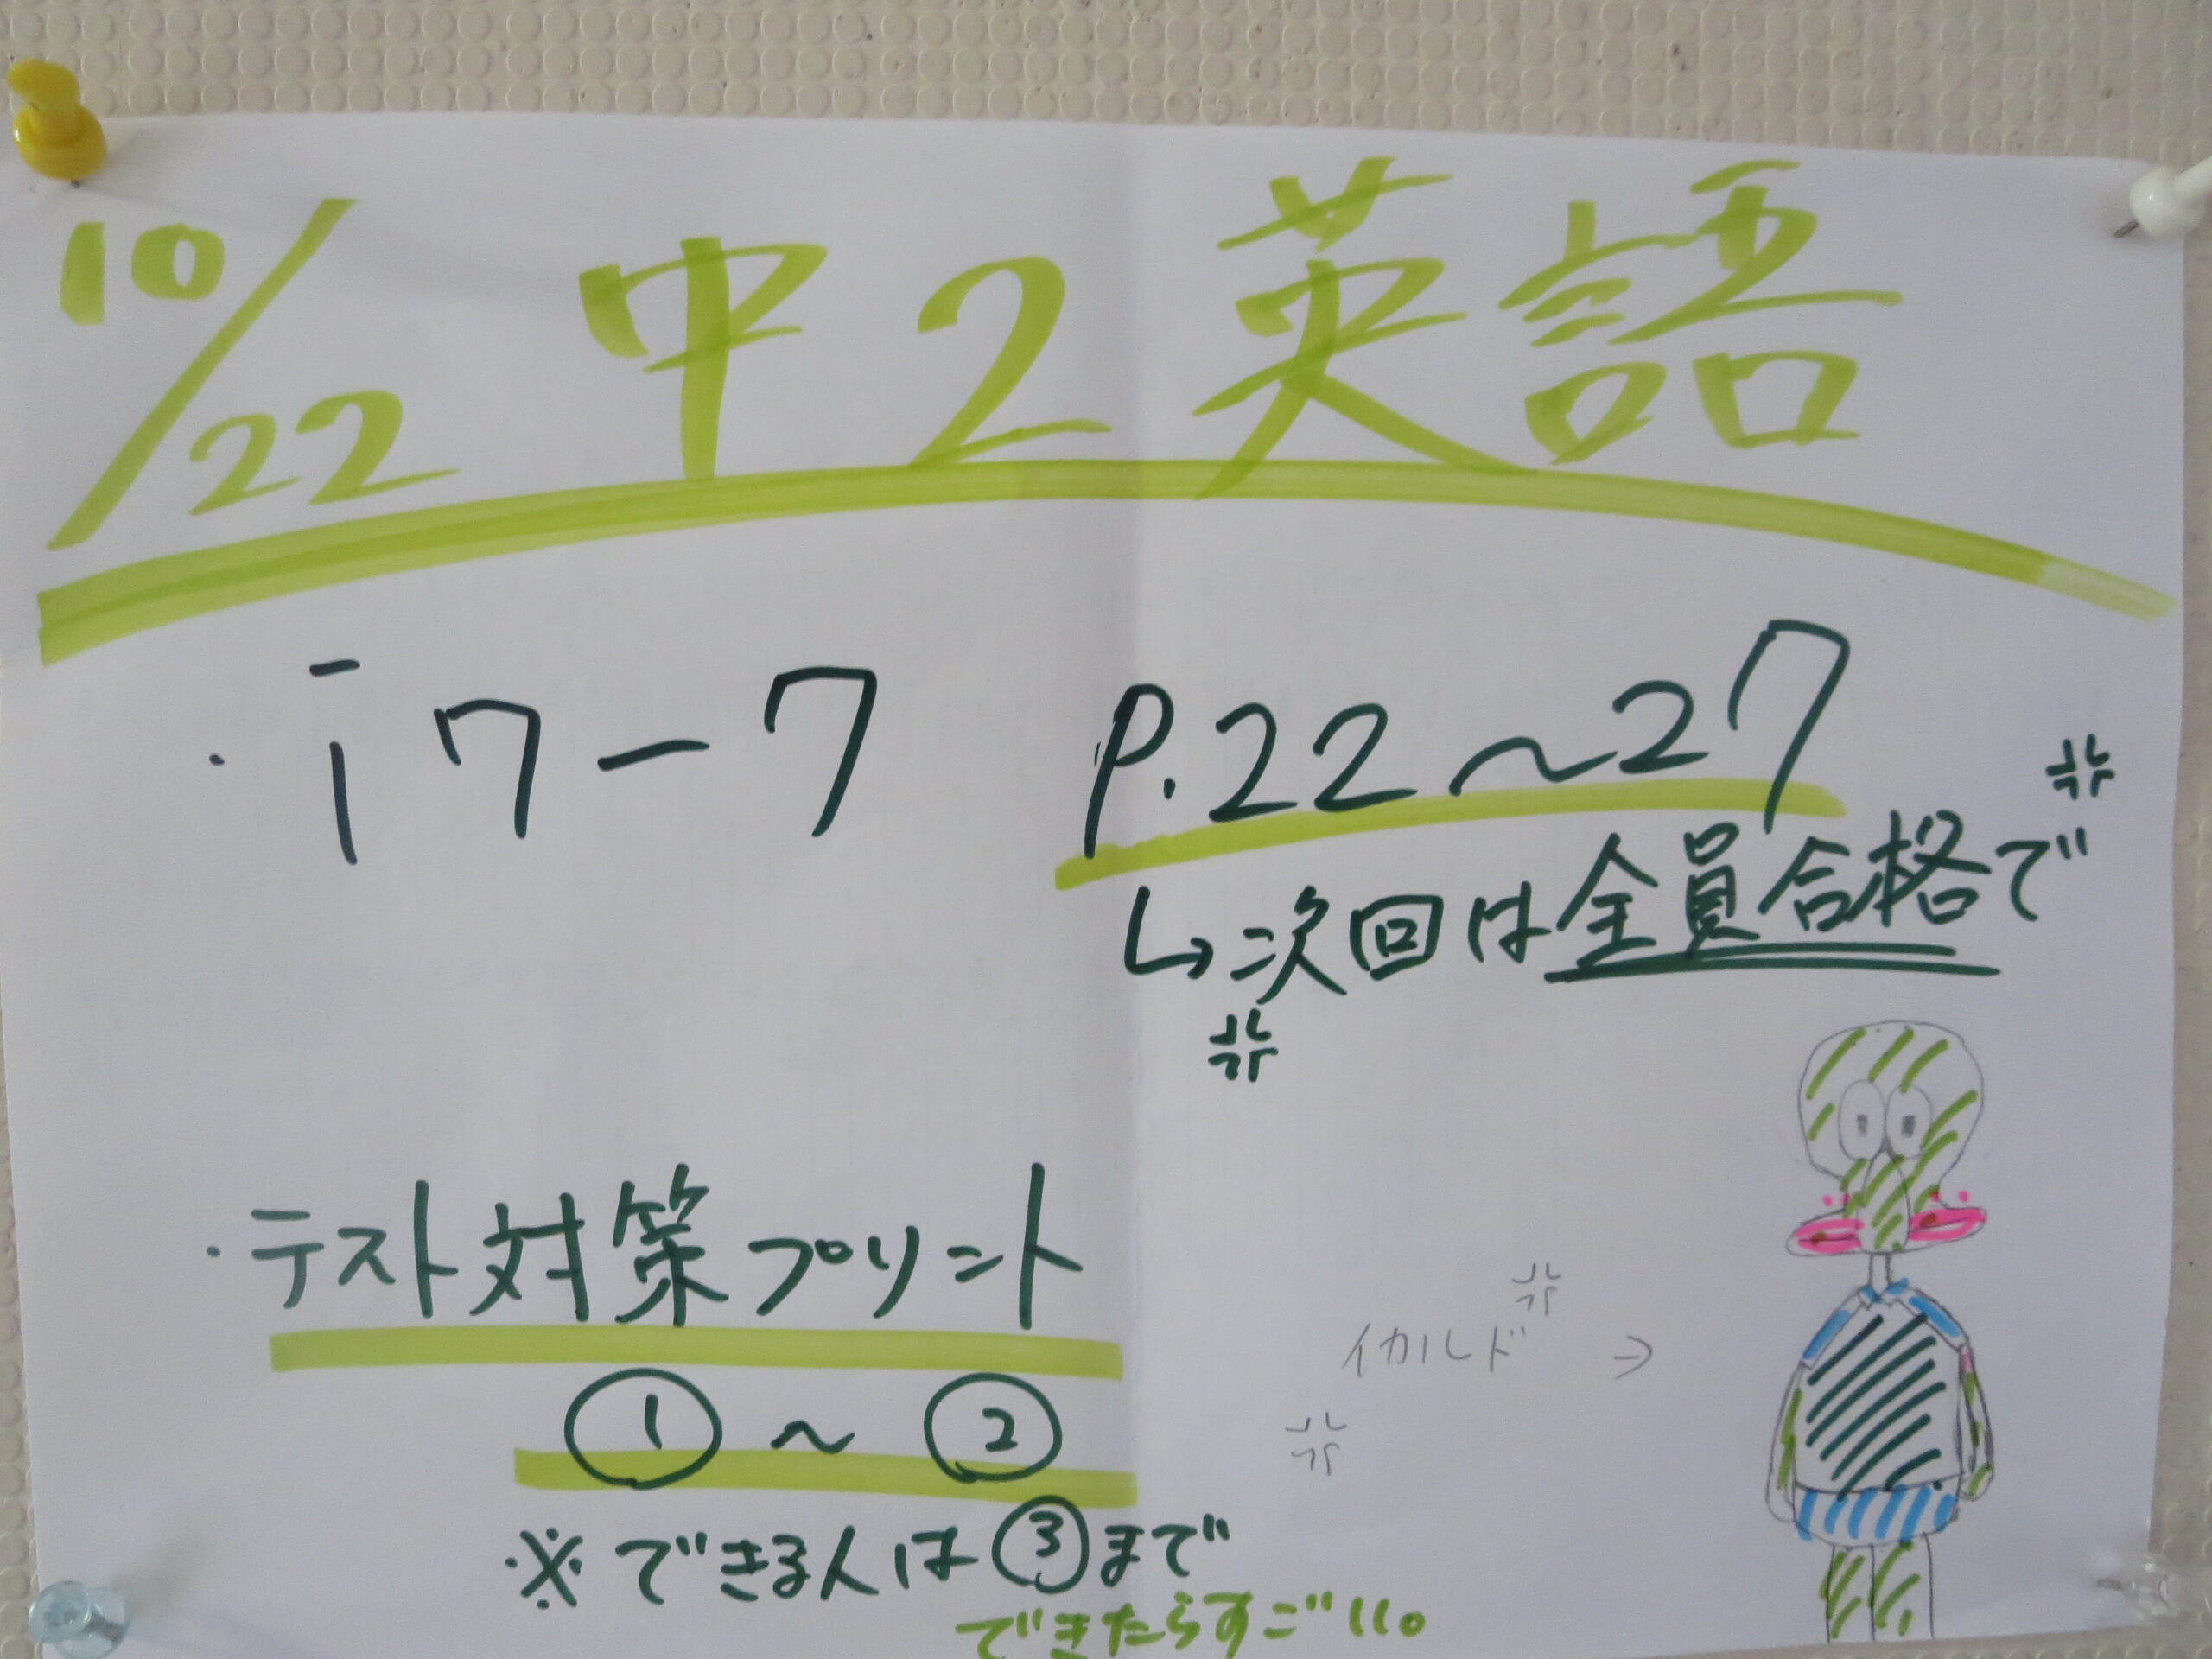 10/22 中2英語
・i7-7 P.22～27
↳次回は全員合格で
・テスト対策プリント
①～②
イカルド →
※できる人は③まで
できたらすごいい。